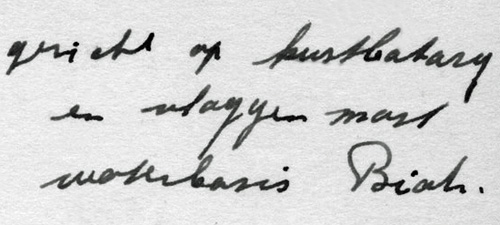 gericht op kustbatary
en vlaggen mast
waterbasis Biak.